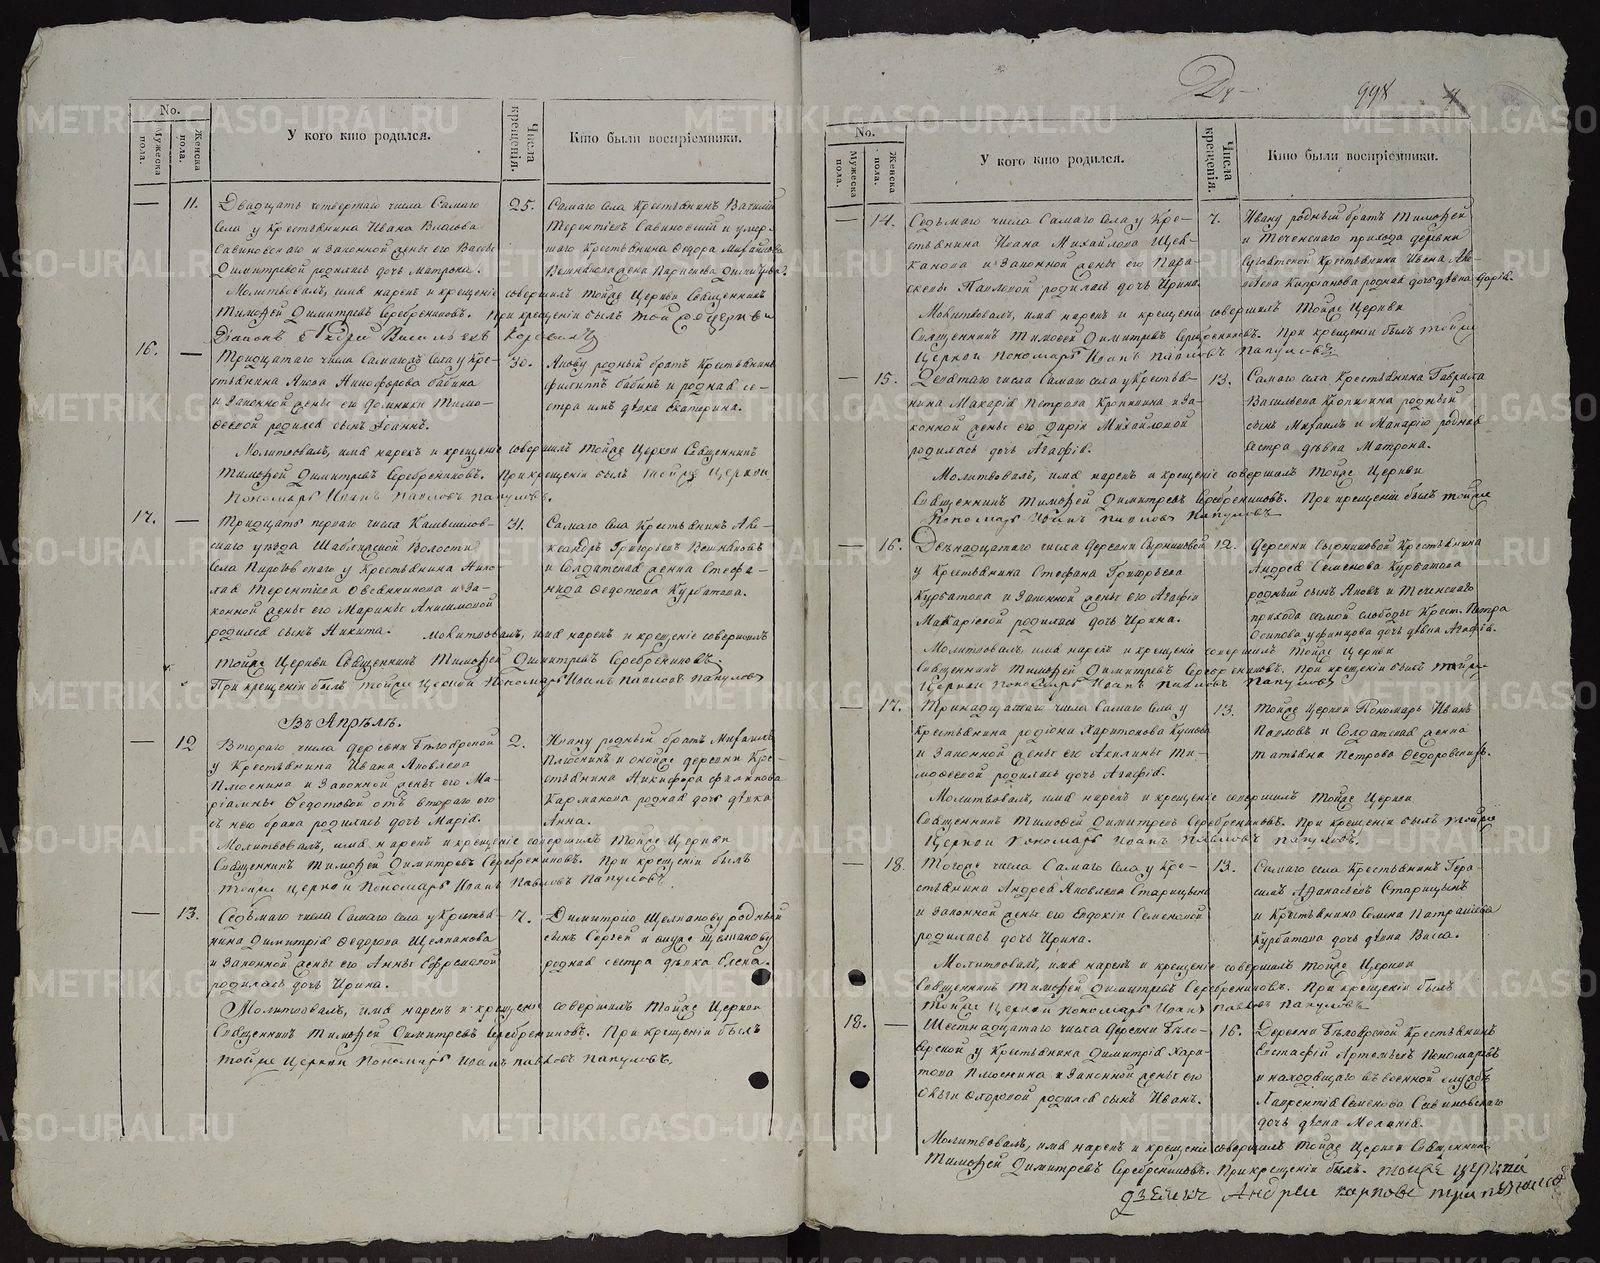 No.
Мужеска пола.
Женска пола.
У кого кто родился.
Числа крещенія.
Кто были воспріемники.
— 11. Двадцать четвертаго числа Самаго
села у крестьянина Ивана Власова
Савиновскаго и законной жены его Васы
Димитревой родилась дочь Матрона.
25.
Самаго села Крестьянинъ Василій
Терентіевъ Савиновскій и умер-
шаго крестьянина Ѳедора Михайлова
жена Параскева
Молитвовалъ, имя нарекъ и крещеніе совершилъ тойже Церкви Священникъ
Тимоѳей Димитревъ Серебрениковъ. При крещеніи былъ той же церкви
16. — Тридцатаго числа Самагожъ села у Кре-
стьянина Якова Никифорова Бабина
и законной жены его Домники Тимо-
ѳеевой родился сынъ Іоаннъ.
30.
Якову родный братъ Крестьянинъ
Филиппъ Бабинъ и родная се-
стра имъ дѣвка Екатерина.
Молитвовалъ, имя нарекъ и крещеніе совершилъ тойже Церкви Священникъ
Тимоѳей Димитревъ Серебрениковъ. При крещеніи былъ тойже церкви
Пономарь Иванъ Павловъ Папуловъ.
17. — Тридцать перваго числа Камышлов-
скаго уѣзда Волости
села у Крестьянина Нико-
лая Терентіева Овсянникова и за-
конной жены его Марины Анисимовой
родился сынъ Никита.
31.
Самаго села Крестьянинъ Але-
ксандръ Григорьевъ
и Солдатская женка Стефа-
нида Ѳедотова Курбатова.
Молитвовалъ, имя нарекъ и крещеніе совершилъ
тойже Церкви Священникъ Тимоѳей Димитревъ Серебрениковъ.
При крещеніи былъ тойже Церкви Пономарь Иванъ Павловъ Папуловъ
Въ Апрѣлѣ.
— 12 Втораго числа деревни Белоярской
у Крестьянина Ивана Яковлева
Плюснина и законной жены его Ма-
ріамны Ѳедотовой отъ втораго его
съ нею брака родилась дочь Марія.
2.
Ивану родный братъ Михаилъ
Плюснинъ и онойже деревни Кре-
стьянина Никифора
Карманова родная дочь дѣвка
Анна.
Молитвовалъ, имя нарекъ и крещеніе совершилъ тойже Церкви
Священникъ Тимоѳей Димитревъ Серебрениковъ. При крещеніи былъ
тойже церкви Пономарь Иванъ Павловъ Папуловъ.
— 13. Седьмаго числа Самаго села у Крестья-
нина Димитрія Ѳедорова Щелканова
и законной жены его Анны Ефремовой
родилась дочь Ирина.
7.
Димитрію Щелканову родный
сынъ Сергей и ему же Щелканову
родная сестра дѣвка Елена.
Молитвовалъ, имя нарекъ и крещеніе совершилъ тойже Церкви
Священникъ Тимоѳей Димитревъ Серебрениковъ. При крещеніи былъ
тойже Церкви Пономарь Иванъ Павловъ Папуловъ.
998
No.
Мужеска пола.
Женска пола.
У кого кто родился.
Числа крещенія.
Кто были воспріемники.
— 14. Седьмаго числа Самаго села у Кре-
стьянина Ивана Михайлова Щел-
канова и законной жены его Пара-
скевы Павловой родилась дочь Ирина.
7.
Ивану родный братъ Тимоѳей
и Теченскаго прихода деревни
Крестьянина Ивана Яко-
влева Кипріанова родная дочь дѣвка Дарія.
Молитвовалъ, имя нарекъ и крещеніе совершилъ тойже Церкви
Священникъ Тимоѳей Димитревъ Серебрениковъ. При крещеніи былъ тойже
Церкви Пономарь Иванъ Павловъ Папуловъ
— 15. Девятаго числа Самаго села у Крестья-
нина Макарія Петрова Кропинина и за-
конной жены его Даріи Михайловой
родилась дочь Агафія.
13.
Самаго села Крестьянина Гаврила
Васильева Кропинина родный
сынъ Михаилъ и Макарію родная
сестра дѣвка Матрона.
Молитвовалъ, имя нарекъ и крещеніе совершилъ тойже Церкви
Священникъ Тимоѳей Димитревъ Серебрениковъ. При крещеніи былъ тойже
Пономарь Иванъ Павловъ Папуловъ
— 16. Двѣнадцатаго числа деревни
у Крестьянина Стефана Григорьева
Курбатова и законной жены его Агафіи
Макаріевой родилась дочь Ирина.
12.
Деревни Крестьянина
Андрея Семенова Курбатова
родный сынъ Яковъ и Теченскаго
прихода самой слободы Крест. Петра
Осипова Уфинцова дочь дѣвка Агафія.
Молитвовалъ, имя нарекъ и крещеніе совершилъ тойже Церкви
Священникъ Тимоѳей Димитревъ Серебрениковъ. При крещеніи былъ тойже
Церкви Пономарь Иванъ Павловъ Папуловъ
— 17. Тринадцатаго числа Самаго села у
Крестьянина Родіона Харитонова
и законной жены его Акилины Ти-
моѳеевой родилась дочь Агафія.
13.
Тойже Церкви Пономарь Иванъ
Павловъ и Солдатская женка
Татьяна Петрова Ѳедоровскихъ.
Молитвовалъ, имя нарекъ и крещеніе совершилъ тойже Церкви
Священникъ Тимоѳей Димитревъ Серебрениковъ. При крещеніи былъ тойже
Церкви Пономарь Иванъ Павловъ Папуловъ.
— 18. Тогоже числа Самаго села у Кре-
стьянина Андрея Яковлева Старицына
и законной жены его Евдокіи Семеновой
родилась дочь Ирина.
13.
Самаго села Крестьянинъ Гера-
симъ Аѳанасьевъ Старицынъ
и Крестьянина Семена
Курбатова дочь дѣвка Васса.
Молитвовалъ, имя нарекъ и крещеніе совершилъ тойже Церкви
Священникъ Тимоѳей Димитревъ Серебрениковъ. При крещеніи былъ
тойже Церкви Пономарь Иванъ Павловъ Папуловъ
18. — Шестнадцатаго числа деревни Бело-
ярской у Крестьянина Димитрія Хари-
това Плюснина и законной жены его
Ѳедоровой родился сынъ Иванъ.
16.
Деревни Белоярской Крестьянинъ
Евстафій Артемьевъ Пономаревъ
и находящаго въ военной службѣ
Лаврентія Семенова Савиновскаго
дочь дѣвка Меланія.
Молитвовалъ, имя нарекъ и крещеніе совершилъ тойже Церкви Священникъ
Тимоѳей Димитревъ Серебрениковъ. При крещеніи былъ тойже церкви
дьячекъ Андрей Карповъ
METRIKI.GASO-URAL.RU